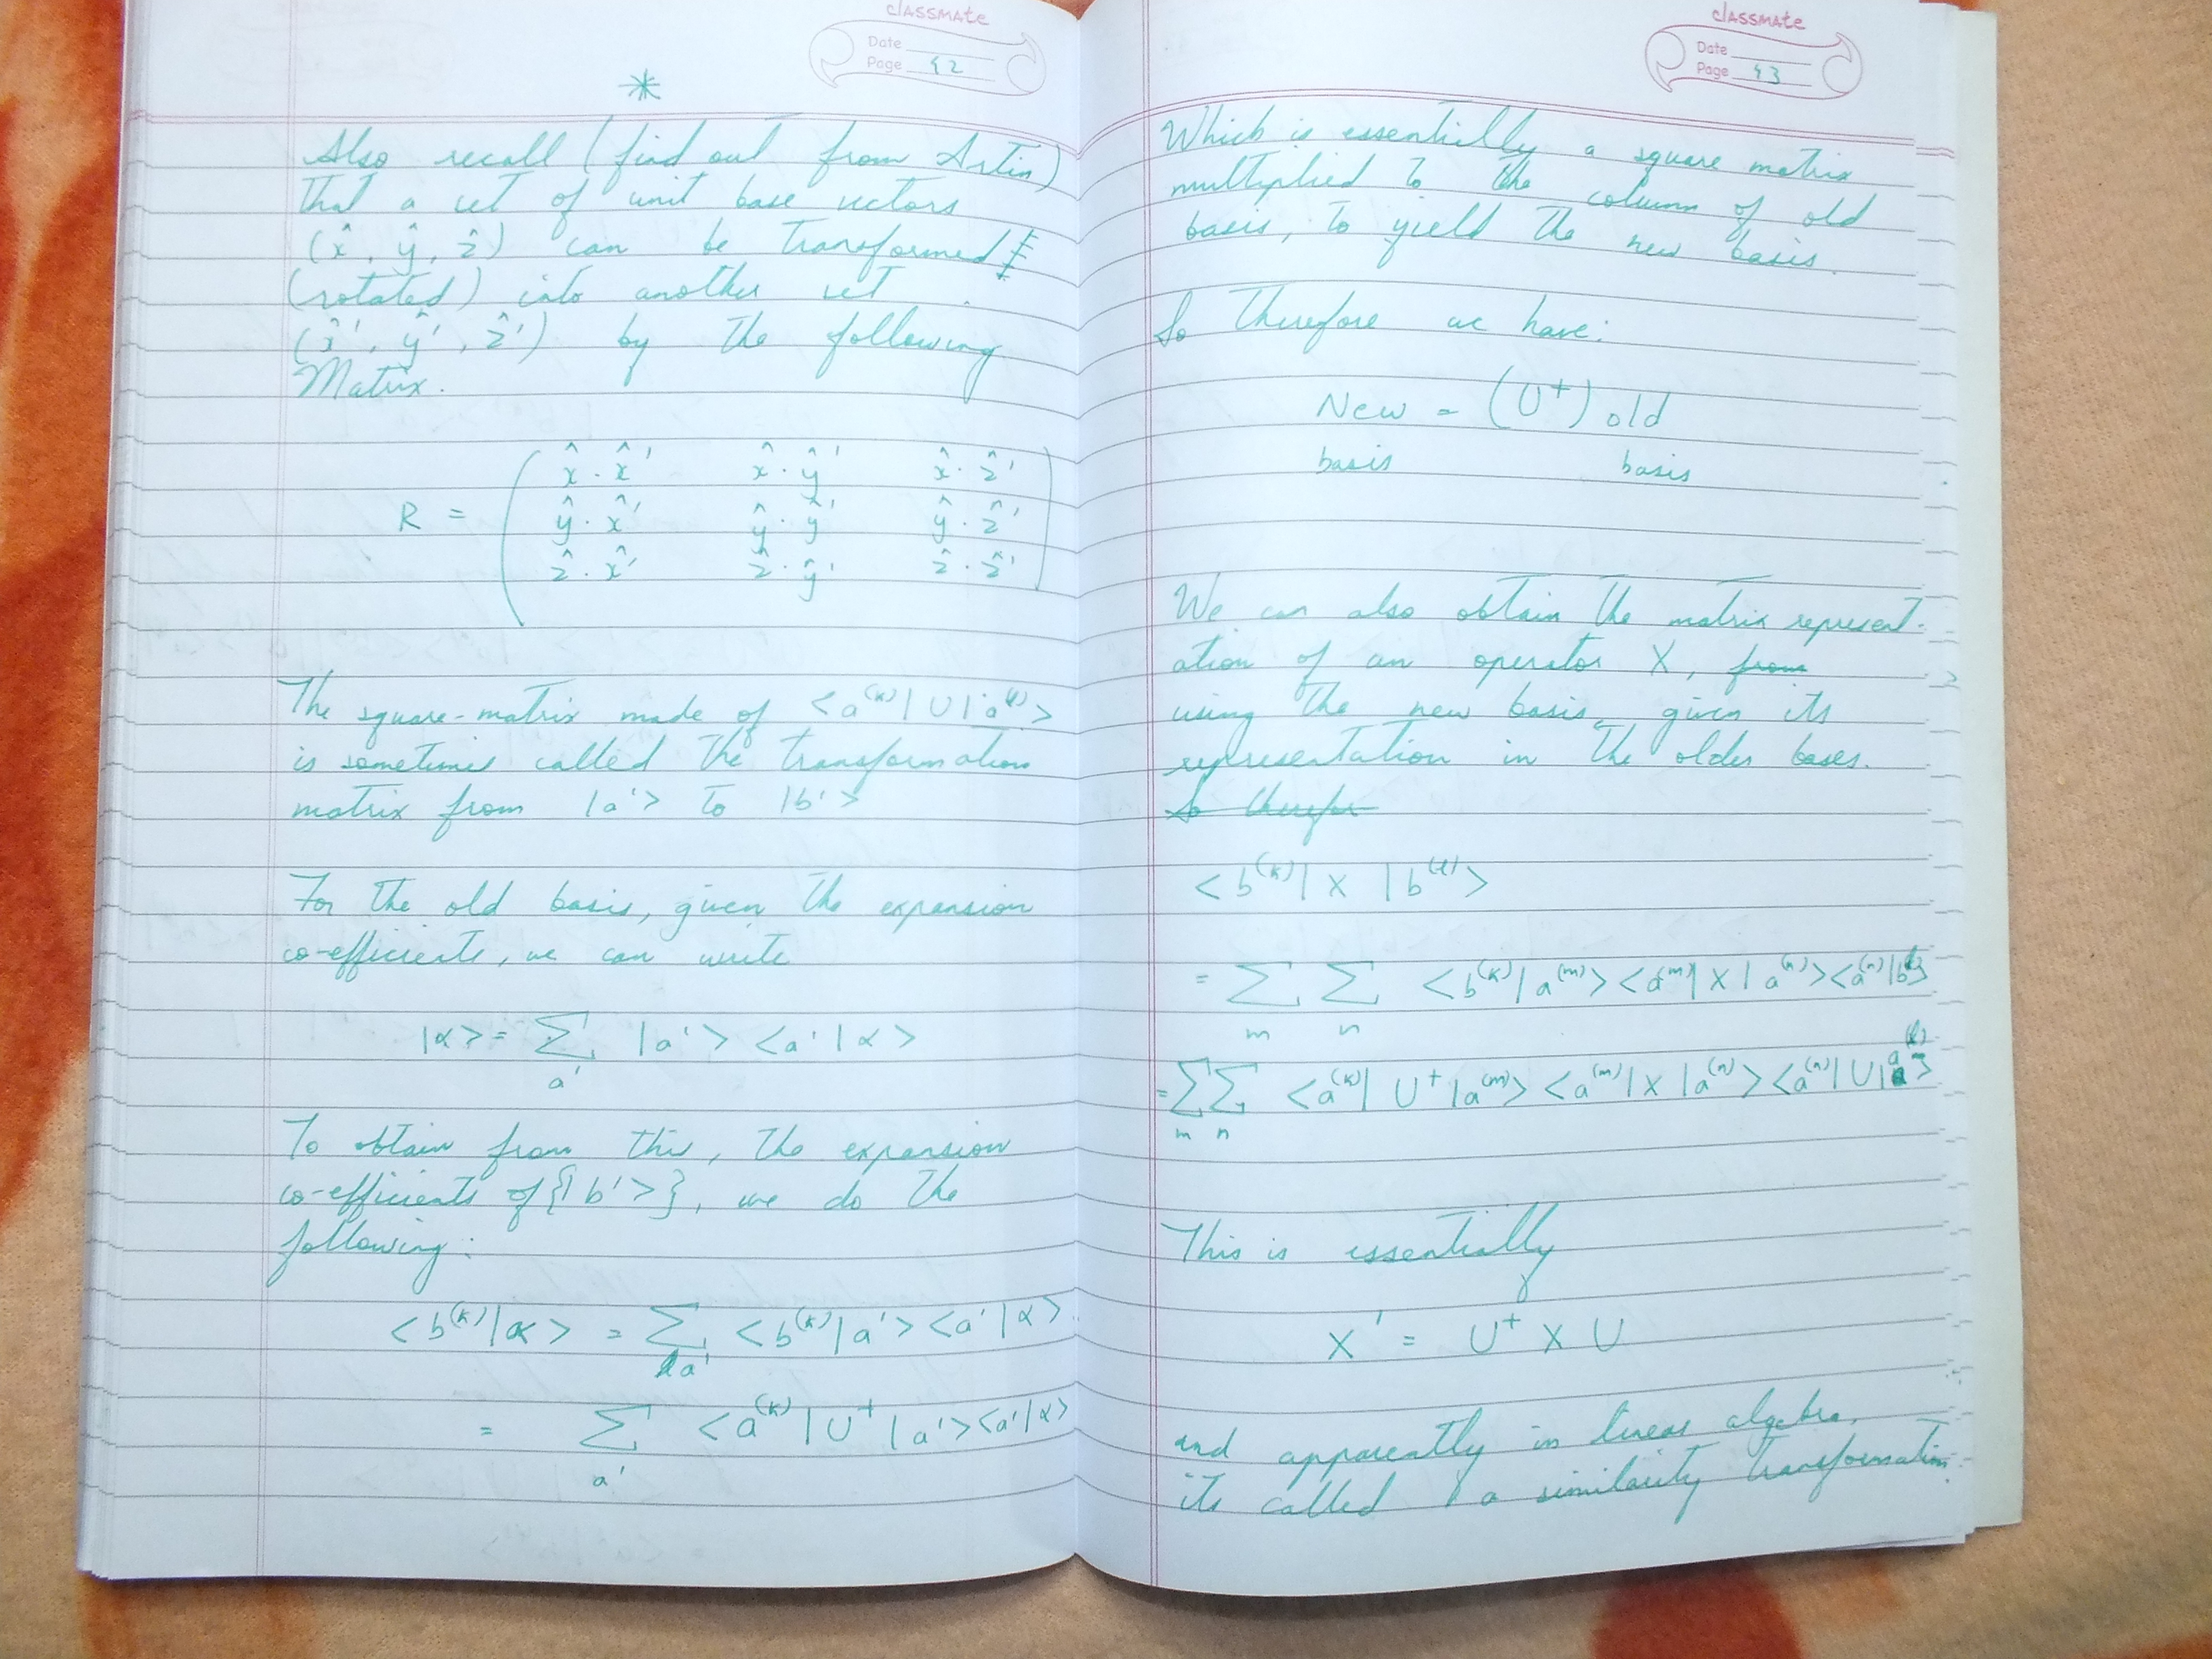 classmate
Date
Page 42
*
Also recall (find out from Artin)
that a set of unit base vectors
(x̂, ŷ, ẑ) can be transformed
(rotated) into another set
(x̂', ŷ', ẑ') by the following
Matrix.
R = ( x̂·x̂' x̂·ŷ' x̂·ẑ'
ŷ·x̂' ŷ·ŷ' ŷ·ẑ'
ẑ·x̂' ẑ·ŷ' ẑ·ẑ' )
The square-matrix made of <a^(k)|U|a^(l)>
is sometimes called the transformation
matrix from |a'> to |b'>
For the old basis, given the expansion
co-efficients, we can write
|α> = Σ |a'> <a'|α>
a'
To obtain from this, the expansion
co-efficients of {|b'>}, we do the
following:
<b^(k)|α> = Σ <b^(k)|a'> <a'|α>
a'
= Σ <a^(k)|U†|a'> <a'|α>
a'
classmate
Date
Page 43
Which is essentially a square matrix
multiplied to the column of old
basis, to yield the new basis.
So therefore we have:
New = (U†) old
basis basis
We can also obtain the matrix represent-
ation of an operator X, from
using the new basis, given its
representation in the older bases.
So therefor
<b^(k)| X |b^(l)>
= Σ Σ <b^(k)|a^(m)> <a^(m)|X|a^(n)> <a^(n)|b^(l)>
m n
= Σ Σ <a^(k)|U†|a^(m)> <a^(m)|X|a^(n)> <a^(n)|U|a^(l)>
m n
This is essentially
X' = U† X U
and apparently in linear algebra,
its called a similarity transformation.